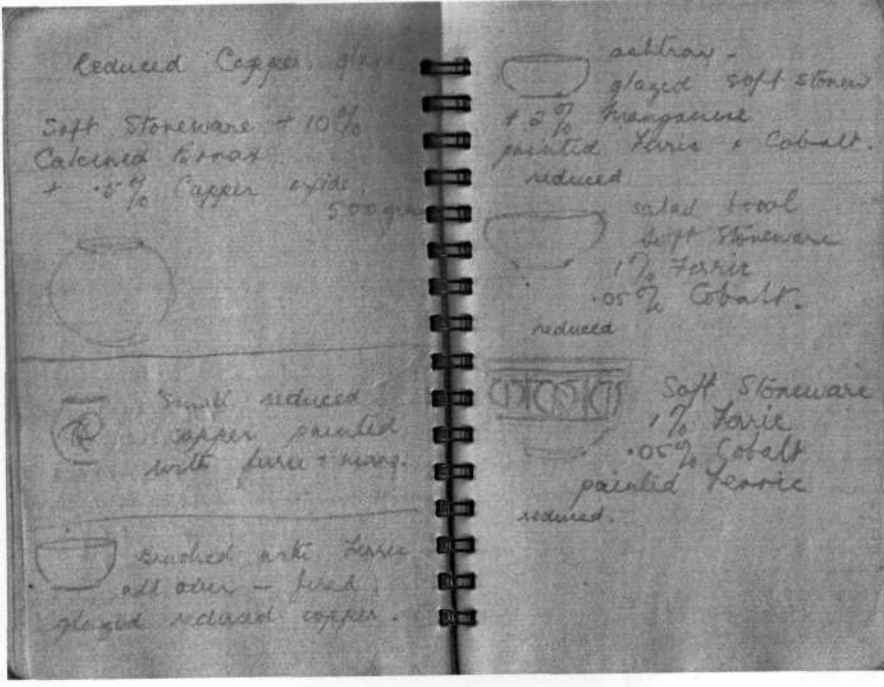 Reduced Copper.
Soft Stoneware + 10%
Calcined Borax
+ .5% Copper oxide.
500
Small reduced
copper painted
with ferric +
Brushed with Ferric
all over – fired
glazed reduced copper.
ashtray –
glazed soft stonew
+ 2% Manganese
painted Ferric + Cobalt.
reduced
salad bowl
Soft Stoneware
1% Ferric
.05% Cobalt.
reduced
Soft Stoneware
1% Ferric
.05% Cobalt
painted Ferric
reduced.